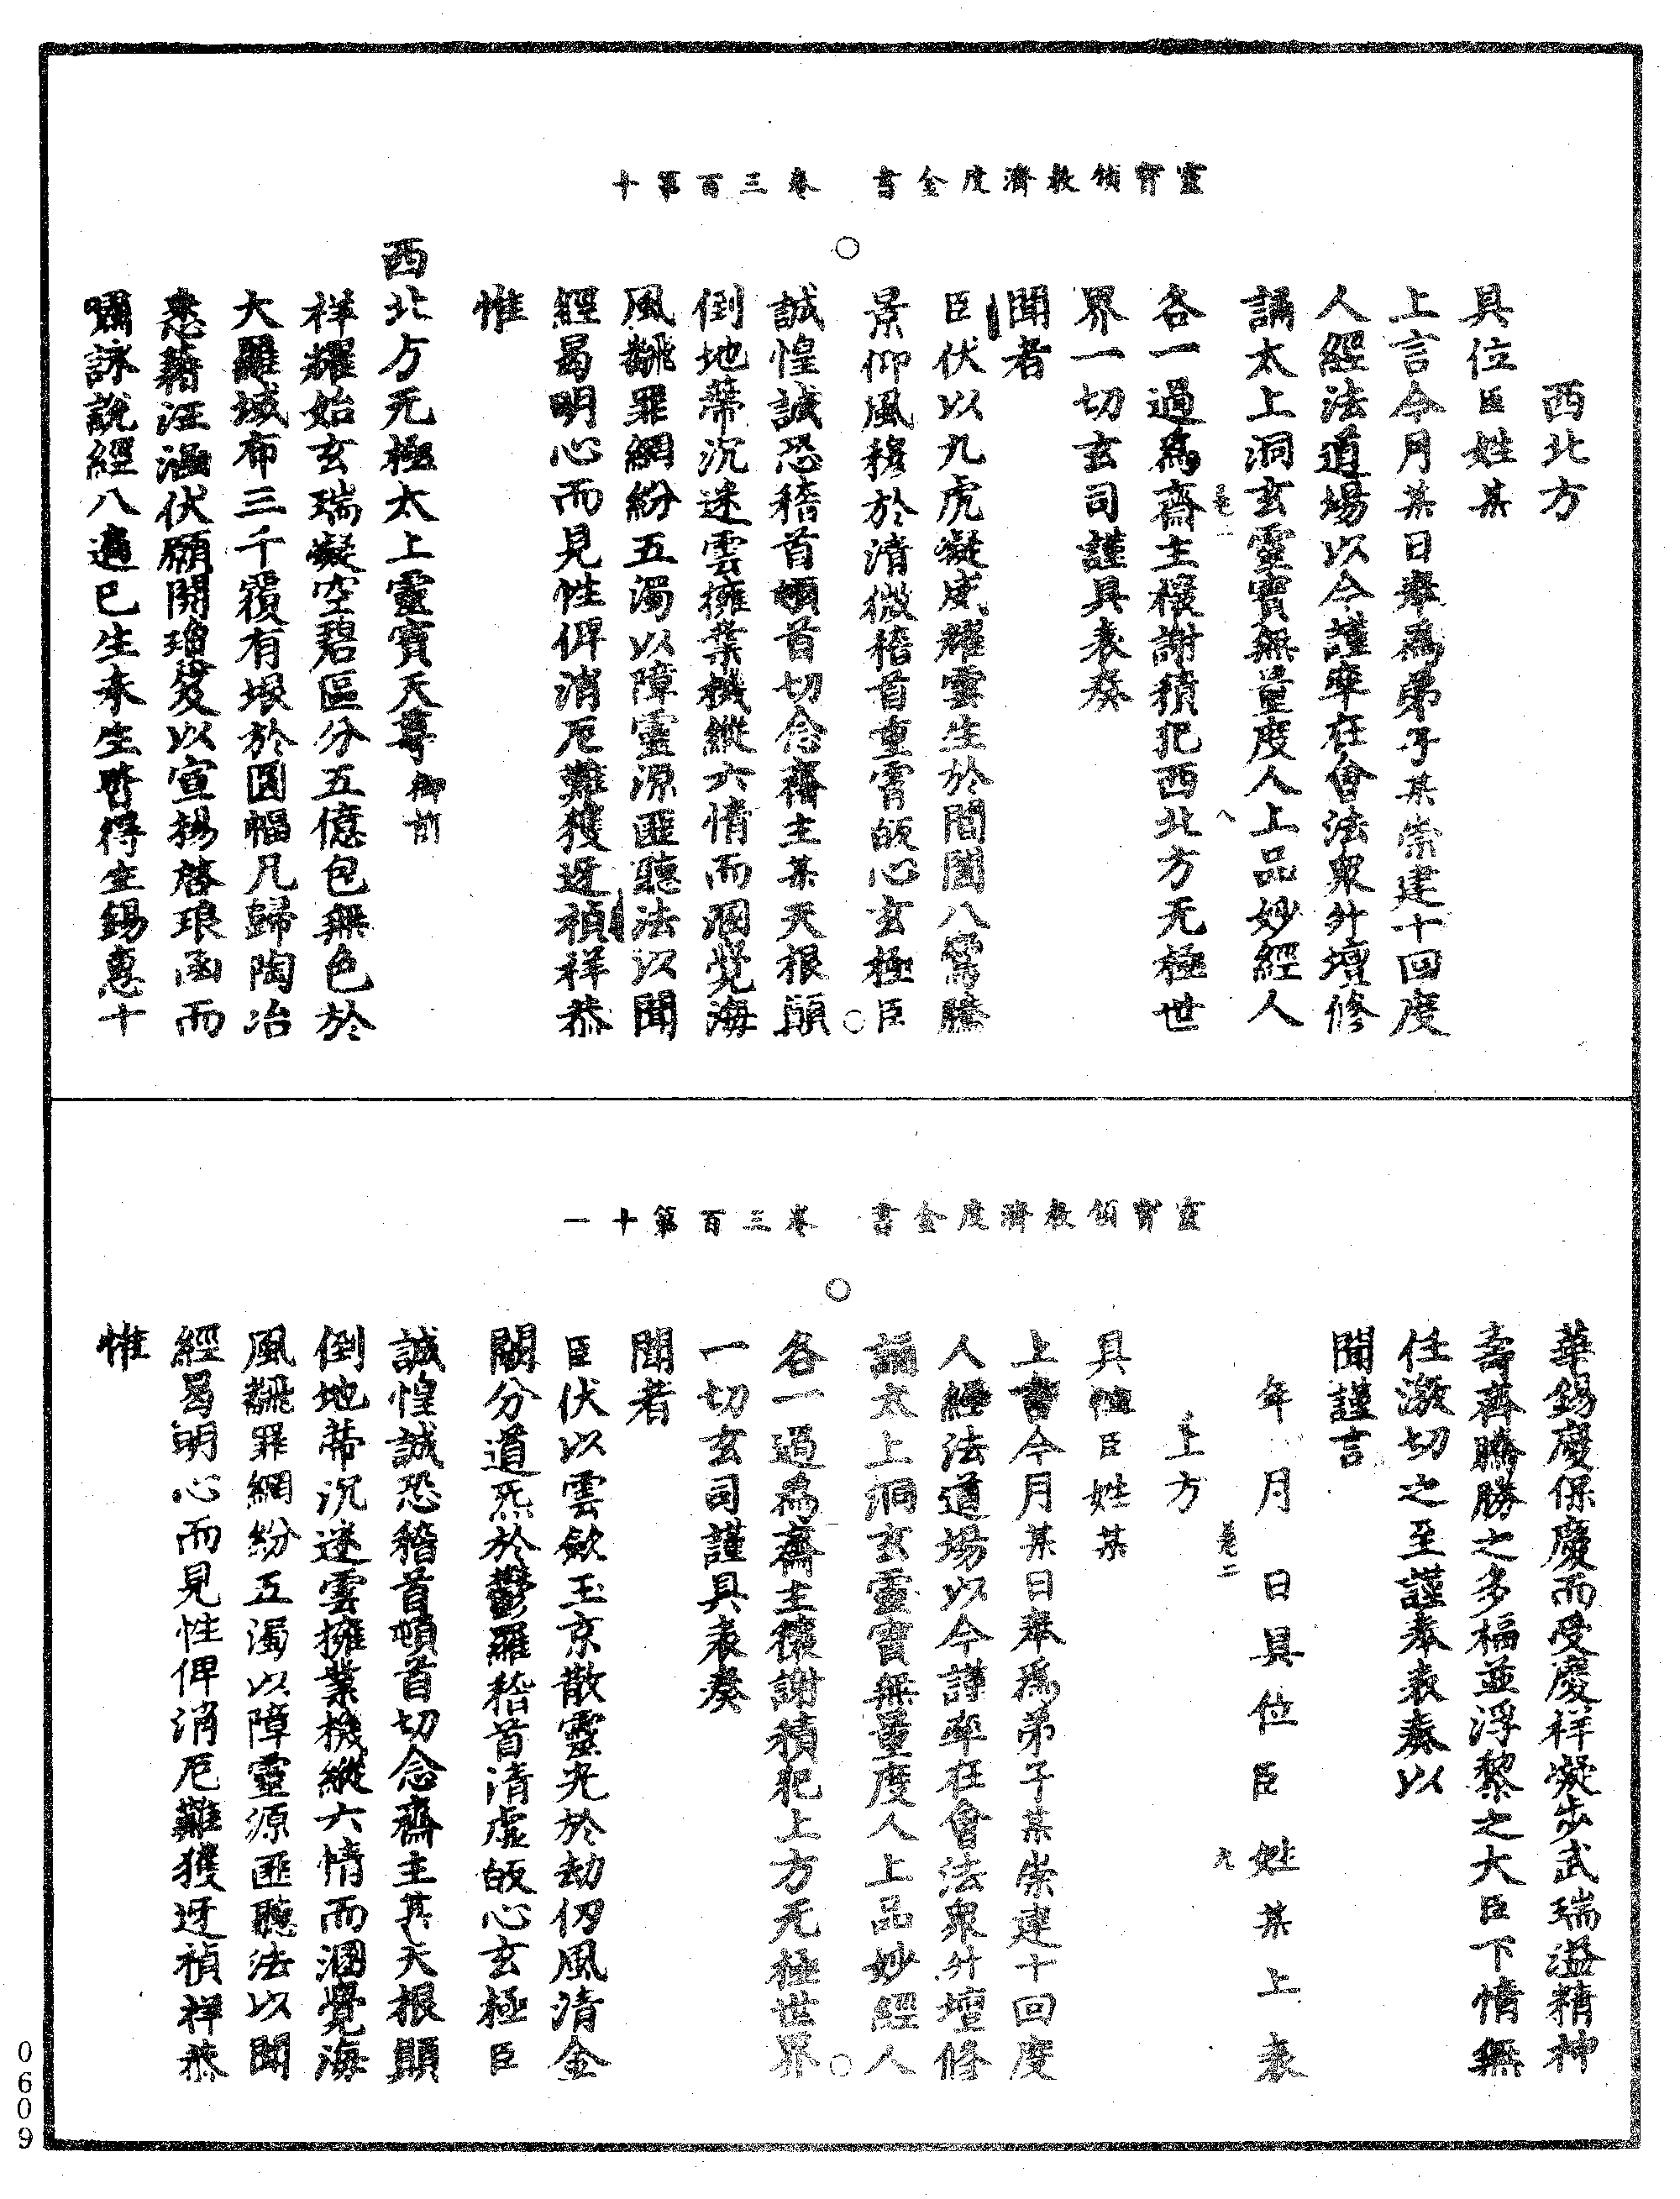 靈寶領教濟度金書　卷三百第十
西北方
具位臣姓某
上言今月某日奉為弟子某崇建十回度
人經法道場以今謹率在會法眾升壇修
誦太上洞玄靈寶無量度人上品妙經人
卷二　八
各一過為齋主禳謝積犯西北方无極世
界一切玄司謹具表奏
聞者
臣伏以九虎凝威耀雲生於閶闔八鸞騰
景仰風穆於清微稽首重霄皈心玄極臣
誠惶誠恐稽首頓首切念齋主某天根顛
倒地蒂沉迷雲擁業機縱六情而涸覺海
風飜罪網紛五濁以障靈源匪聽法以聞
經曷明心而見性俾消厄難獲迓禎祥恭
惟
西北方无極太上靈寶天尊御前
祥耀始玄瑞凝空碧區分五億包無色於
大羅域布三千覆有垠於圓幅凡歸陶冶
悉藉汪涵伏願開瓊笈以宣揚啓琅函而
嘯詠說經八過已生未生皆得生錫惠十
靈寶領教濟度金書　卷三百第十一
華錫慶保慶而受慶祥凝步武瑞溢精神
壽齊騰勝之多福並浮黎之大臣下情無
任激切之至謹奉表奏以
聞謹言
年　月　日具位臣姓某上表
卷二　九
上方
具位臣姓某
上言今月某日奉為弟子某崇建十回度
人經法道場以今謹率在會法眾升壇修
誦太上洞玄靈寶無量度人上品妙經人
各一過為齋主禳謝積犯上方无極世界
一切玄司謹具表奏
聞者
臣伏以雲歛玉京散靈光於劫仞風清金
闕分道炁於鬱羅稽首清虛皈心玄極臣
誠惶誠恐稽首頓首切念齋主某天根顛
倒地蒂沉迷雲擁業機縱六情而涸覺海
風飜罪網紛五濁以障靈源匪聽法以聞
經曷明心而見性俾消厄難獲迓禎祥恭
惟
0609